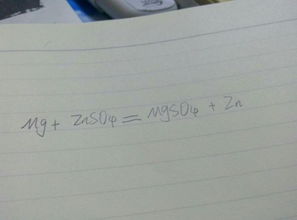 Mg + ZnSO₄ = MgSO₄ + Zn